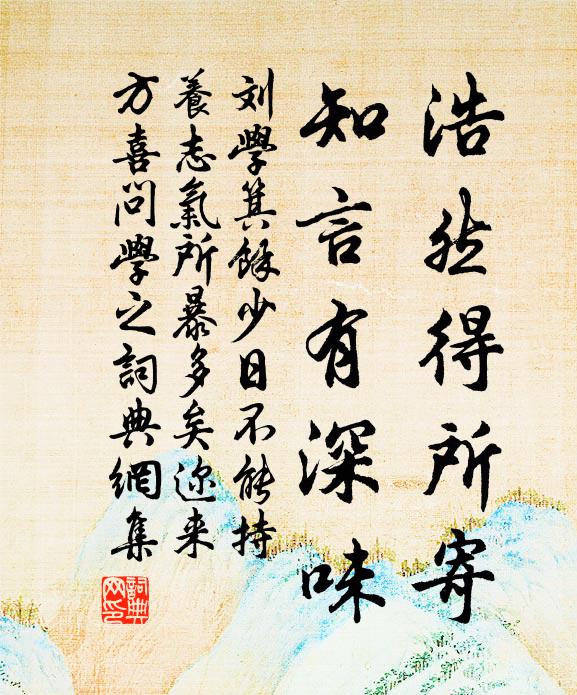 浩然得所寄
知言有深味
刘學箕餘少日不能持
養志氣所暴多矣邇来
方喜問學之詞典網集
詞典網印